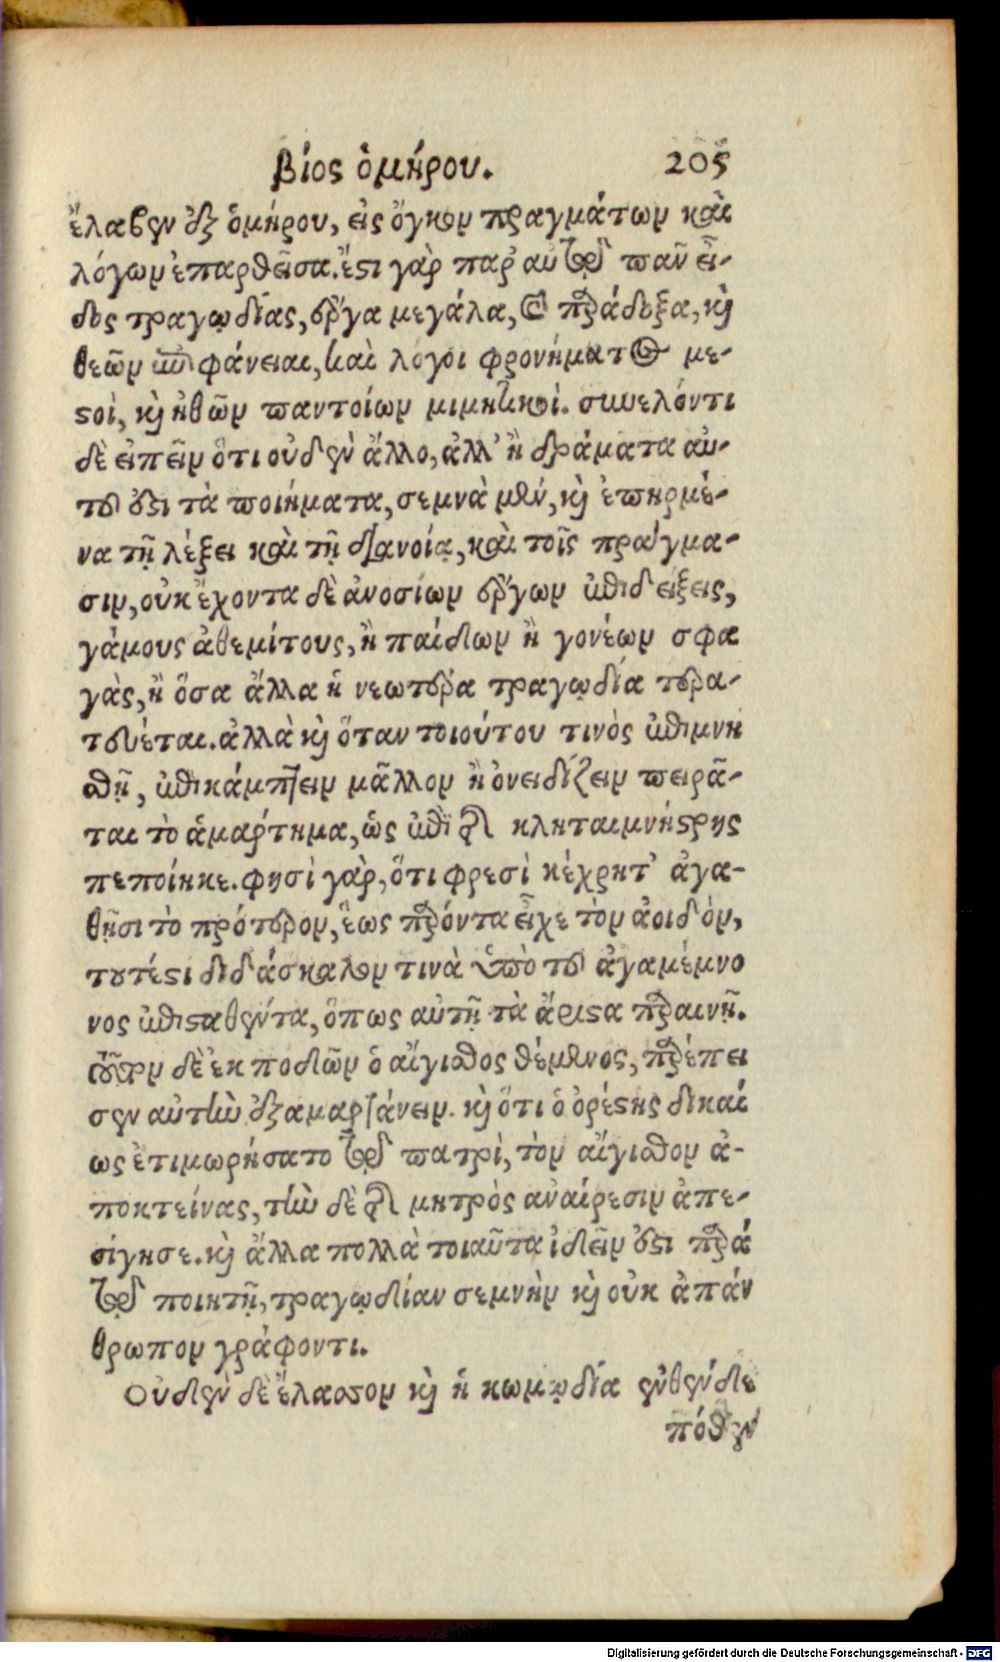 βίος ὁμήρου. 205
ἔλαβεν ἐξ ὁμήρου, εἰς ὄγκον πραγμάτων καὶ
λόγων ἐπαρθεῖσα. ἔστι γὰρ παρ' αὐτῷ πᾶν εἶ-
δος τραγῳδίας, ἔργα μεγάλα, καὶ παράδοξα, καὶ
θεῶν ἐπιφάνειαι, καὶ λόγοι φρονήματος με-
στοὶ, καὶ ἠθῶν παντοίων μιμητικοὶ. συνελόντι
δὲ εἰπεῖν ὅτι οὐδὲν ἄλλο, ἀλλ' ἢ δράματα αὐ-
τοῦ ἐστι τὰ ποιήματα, σεμνὰ μὲν, καὶ ἐπηρμέ-
να τῇ λέξει καὶ τῇ διανοίᾳ, καὶ τοῖς πράγμα-
σιν, οὐκ ἔχοντα δὲ ἀνοσίων ἔργων ἐπιδείξεις,
γάμους ἀθεμίτους, ἢ παίδων ἢ γονέων σφα
γὰς, ἢ ὅσα ἄλλα ἡ νεωτέρα τραγῳδία τερα-
τεύεται. ἀλλὰ καὶ ὅταν τοιούτου τινὸς ἐπιμνη
σθῇ, ἐπικάμπτειν μᾶλλον ἢ ὀνειδίζειν πειρᾶ-
ται τὸ ἁμάρτημα, ὡς ἐπὶ τῆς κληταιμνήστρης
πεποίηκε. φησὶ γὰρ, ὅτι φρεσὶ κέχρητ' ἀγα-
θῇσι τὸ πρότερον, ἕως παρόντα εἶχε τὸν ἀοιδὸν,
τουτέστι διδάσκαλόν τινὰ ὑπὸ τοῦ ἀγαμέμνο
νος ἐπισταθέντα, ὅπως αὐτῇ τὰ ἄριστα παραινῇ.
τοῦτον δὲ ἐκ ποδῶν ὁ αἴγισθος θέμενος, παρέπει
σεν αὐτὴν ἐξαμαρτάνειν. καὶ ὅτι ὁ ὀρέστης δικαί
ως ἐτιμωρήσατο τῷ πατρὶ, τὸν αἴγισθον ἀ-
ποκτείνας, τὴν δὲ τῆς μητρὸς ἀναίρεσιν ἀπε-
σίγησε. καὶ ἄλλα πολλὰ τοιαῦτα ἰδεῖν ἐστι παρά
τῷ ποιητῇ, τραγῳδίαν σεμνὴν καὶ οὐκ ἀπάν
θρωπον γράφοντι.
Οὐδὲν δὲ ἔλασσον καὶ ἡ κωμῳδία ἐνθένδε
πόθεν
Digitalisierung gefördert durch die Deutsche Forschungsgemeinschaft - DFG